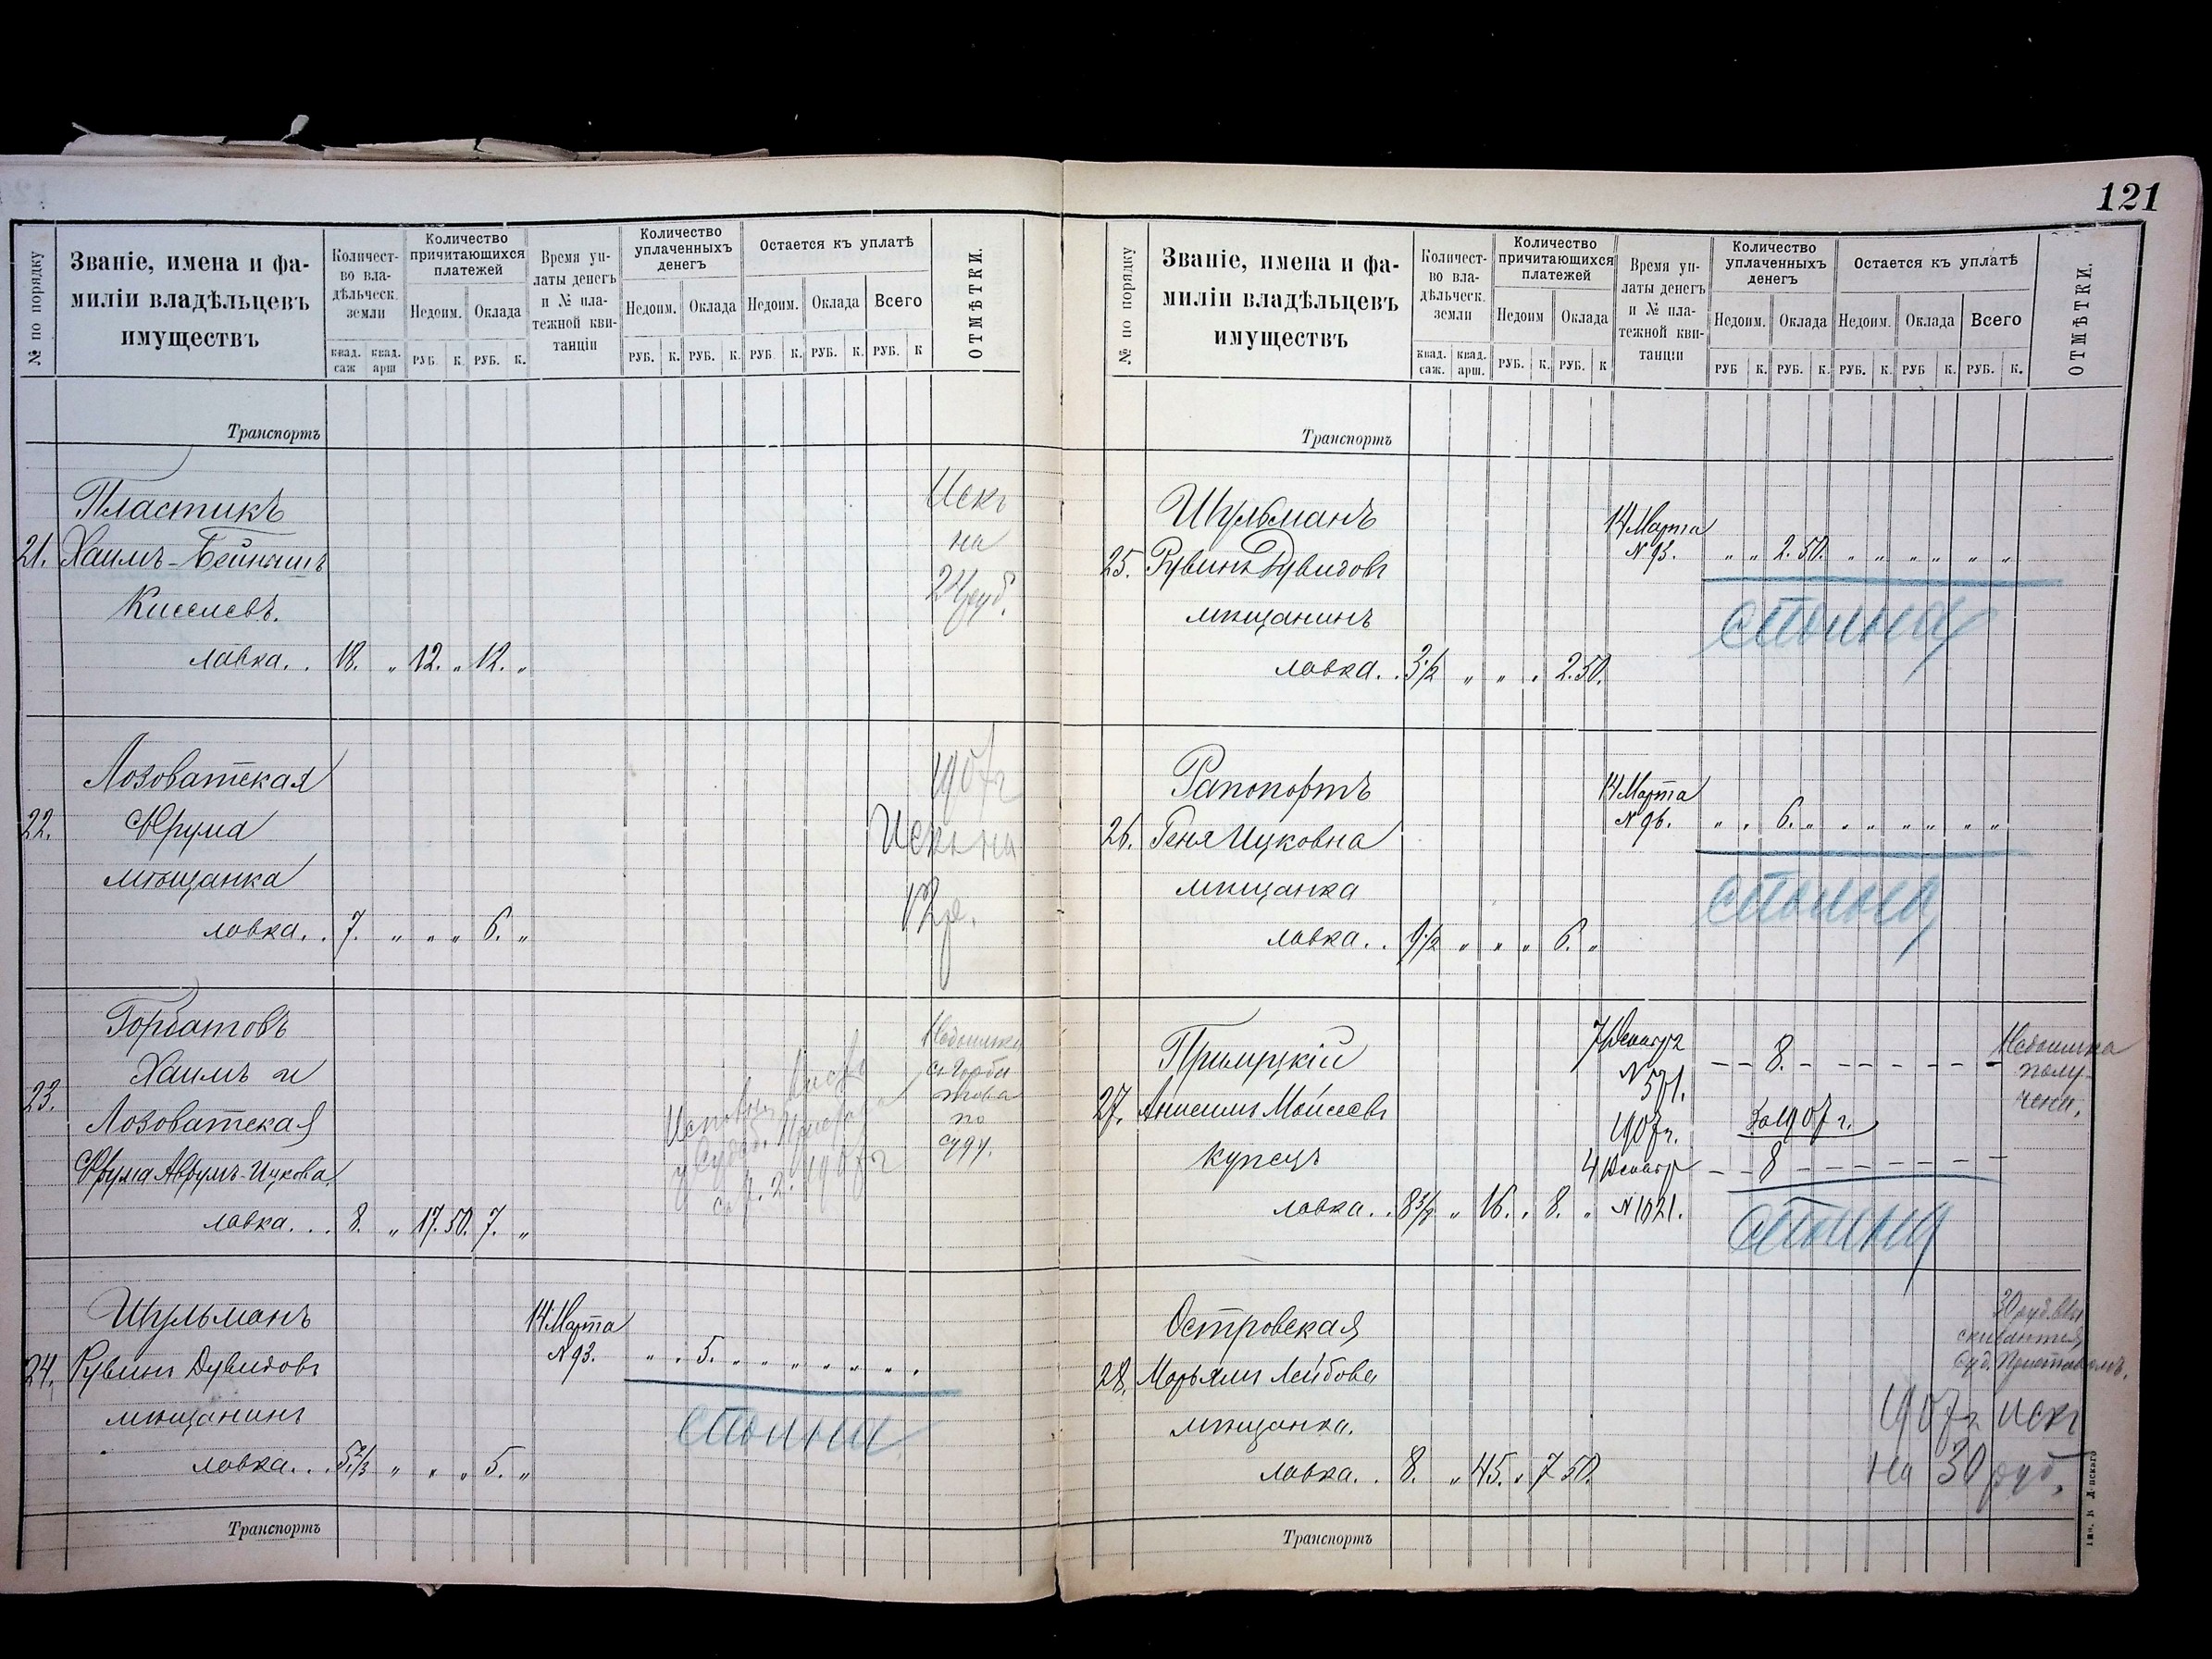 121
№ по порядку
Званіе, имена и фа-
миліи владѣльцевъ
имуществъ
Количест-
во вла-
дѣльческ.
земли
квад. саж
квад. арш
Количество
причитающихся
платежей
Недоим. Оклада
РУБ. К. РУБ. К.
Время уп-
латы денегъ
и № пла-
тежной кви-
танціи
Количество
уплаченныхъ
денегъ
Недоим. Оклада
РУБ. К. РУБ. К.
Остается къ уплатѣ
Недоим. Оклада Всего
РУБ К. РУБ. К. РУБ. К
ОТМѢТКИ.
Транспортъ
Пластикъ
21. Хаимъ-Бейнышъ
Киселевъ.
лавка. . 18. „ 12. „ 12. „
Искъ
на
24 руб.
Лозоватская
22. Фрума
мѣщанка
лавка. . 7. „ „ „ 6. „
1907 г
Искъ на
12 р.
Горбатовъ
Хаимъ и
23.
Лозоватская
Фрума Аврумъ-Ицкова
лавка. . . 8. „ 17. 50. 7. „
Исполн. листъ
у Судеб. Пристава
1907 г
Недоимка
съ Горба
това
по
суду.
Шульманъ
24. Рувинъ Дувидовъ
мѣщанинъ
лавка. . . 5 2/3 „ „ „ 5. „
14 Марта
№ 93. „ „ 5. „ „ „ „ „ „ „
Транспортъ
№ по порядку
Званіе, имена и фа-
миліи владѣльцевъ
имуществъ
Количест-
во вла-
дѣльческ.
земли
квад. саж.
квад. арш.
Количество
причитающихся
платежей
Недоим Оклада
РУБ. К. РУБ. К
Время уп-
латы денегъ
и № пла-
тежной кви-
танціи
Количество
уплаченныхъ
денегъ
Недоим. Оклада
РУБ К. РУБ. К.
Остается къ уплатѣ
Недоим. Оклада Всего
РУБ. К. РУБ К. РУБ. К.
ОТМѢТКИ.
Транспортъ
Шульманъ
25. Рувинъ Дувидовъ
мѣщанинъ
лавка. . 3 1/2 „ „ „ 2. 50.
14 Марта
№ 93. „ „ 2. 50. „ „ „ „ „ „
Рапопортъ
26. Геня Ицковна
мѣщанка
лавка. . 9 1/2 „ „ „ 6. „
14 Марта
№ 96. „ „ 6. „ „ „ „ „ „ „
27. Анисимъ Моисеевъ
купецъ
лавка. . 8 3/4 „ 16. „ 8. „
7 Декабря
№ 571.
8.
1907 г.
За 1907 г.
4 Декабр
8
№ 1021.
Недоимка
полу-
чена.
Островская
28. Марьямъ Лейбова
мѣщанка.
лавка. . 8. „ 45. „ 7 50.
30 руб. взы
скиваются
Суд. Приставомъ.
1907 г искъ
на 30 руб.
Транспортъ